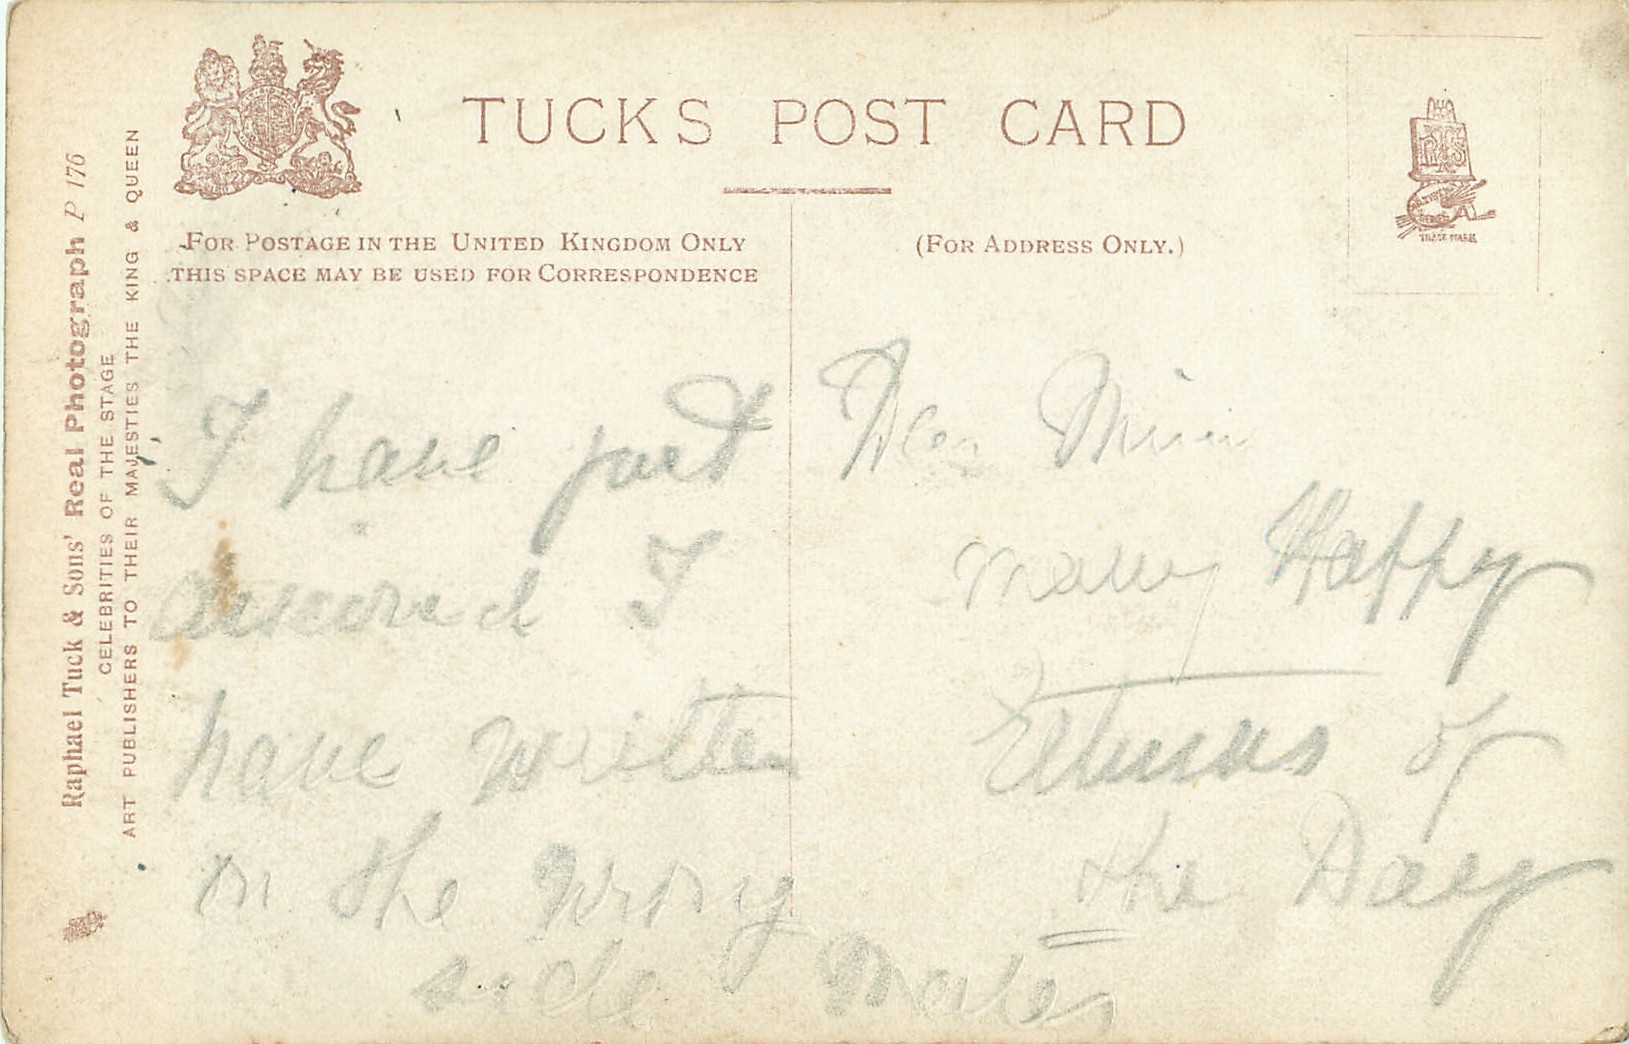 TUCKS POST CARD
FOR POSTAGE IN THE UNITED KINGDOM ONLY
THIS SPACE MAY BE USED FOR CORRESPONDENCE
(FOR ADDRESS ONLY.)
TRADE MARK
Raphael Tuck & Sons' Real Photograph P 176
CELEBRITIES OF THE STAGE
ART PUBLISHERS TO THEIR MAJESTIES THE KING & QUEEN
Dear
Many Happy
of
the Day
I have just
I
have written
on the wrong
side